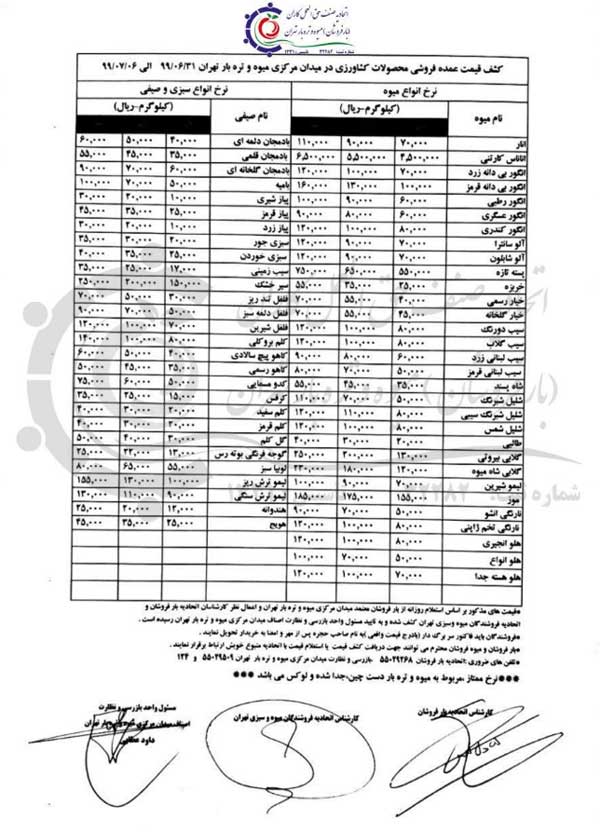 اتحادیه صنف حق العمل کاران
(بارفروشان) میوه و تره بار تهران
کشف قیمت عمده فروشی محصولات کشاورزی در میدان مرکزی میوه و تره بار تهران ۹۹/۰۶/۳۱ الی ۹۹/۰۷/۰۶
نرخ انواع میوه نرخ انواع سبزی و صیفی
نام میوه (کیلوگرم-ریال) نام صیفی (کیلوگرم-ریال)
انار ۷۰,۰۰۰ ۹۰,۰۰۰ ۱۱۰,۰۰۰ بادمجان دلمه ای ۴۰,۰۰۰ ۵۰,۰۰۰ ۶۰,۰۰۰
آناناس کارتنی ۴,۵۰۰,۰۰۰ ۵,۵۰۰,۰۰۰ ۶,۵۰۰,۰۰۰ بادمجان قلمی ۳۵,۰۰۰ ۴۵,۰۰۰ ۵۵,۰۰۰
انگور بی دانه زرد ۷۰,۰۰۰ ۱۰۰,۰۰۰ ۱۲۰,۰۰۰ بادمجان گلخانه ای ۶۰,۰۰۰ ۷۰,۰۰۰ ۹۰,۰۰۰
انگور بی دانه قرمز ۱۰۰,۰۰۰ ۱۳۰,۰۰۰ ۱۶۰,۰۰۰ بامیه ۵۰,۰۰۰ ۷۰,۰۰۰ ۱۰۰,۰۰۰
انگور رطبی ۶۰,۰۰۰ ۹۰,۰۰۰ ۱۰۰,۰۰۰ پیاز شیری ۱۰,۰۰۰ ۲۰,۰۰۰ ۳۰,۰۰۰
انگور عسگری ۶۰,۰۰۰ ۸۰,۰۰۰ ۹۰,۰۰۰ پیاز قرمز ۲۵,۰۰۰ ۳۵,۰۰۰ ۴۵,۰۰۰
انگور کندری ۸۰,۰۰۰ ۱۰۰,۰۰۰ ۱۲۰,۰۰۰ پیاز زرد ۱۰,۰۰۰ ۲۰,۰۰۰ ۳۰,۰۰۰
آلو سانترا ۷۰,۰۰۰ ۹۰,۰۰۰ ۱۲۰,۰۰۰ سبزی جور ۲۰,۰۰۰ ۳۰,۰۰۰ ۳۵,۰۰۰
آلو شابلون ۷۰,۰۰۰ ۹۰,۰۰۰ ۱۲۰,۰۰۰ سبزی خوردن ۲۵,۰۰۰ ۳۵,۰۰۰ ۴۰,۰۰۰
پسته تازه ۵۵۰,۰۰۰ ۶۵۰,۰۰۰ ۷۵۰,۰۰۰ سیب زمینی ۱۷,۰۰۰ ۲۵,۰۰۰ ۳۵,۰۰۰
خربزه ۲۵,۰۰۰ ۳۵,۰۰۰ ۵۵,۰۰۰ سیر خشک ۱۵۰,۰۰۰ ۲۰۰,۰۰۰ ۲۵۰,۰۰۰
خیار رسمی ۴۰,۰۰۰ ۵۵,۰۰۰ ۷۰,۰۰۰ فلفل تند ریز ۵۰,۰۰۰ ۷۰,۰۰۰
خیار گلخانه ۴۵,۰۰۰ ۵۵,۰۰۰ ۷۰,۰۰۰ فلفل دلمه سبز ۵۰,۰۰۰ ۷۰,۰۰۰ ۹۰,۰۰۰
سیب دورنگ ۸۰,۰۰۰ ۱۰۰,۰۰۰ ۱۲۰,۰۰۰ فلفل شیرین ۷۰,۰۰۰ ۱۰۰,۰۰۰
سیب گلاب ۸۰,۰۰۰ ۱۰۰,۰۰۰ ۱۲۰,۰۰۰ کلم بروکلی ۸۰,۰۰۰ ۱۰۰,۰۰۰ ۱۴۰,۰۰۰
سیب لبنانی زرد ۶۰,۰۰۰ ۸۰,۰۰۰ ۹۰,۰۰۰ کاهو پیچ سالادی ۴۰,۰۰۰ ۵۰,۰۰۰ ۶۰,۰۰۰
سیب لبنانی قرمز ۵۰,۰۰۰ ۷۰,۰۰۰ ۸۰,۰۰۰ کاهو رسمی ۳۵,۰۰۰
شاه پسند ۳۵,۰۰۰ ۴۵,۰۰۰ ۵۵,۰۰۰ کدو مسمایی ۵۰,۰۰۰ ۶۰,۰۰۰ ۷۵,۰۰۰
شلیل شبرنگ ۵۰,۰۰۰ ۷۰,۰۰۰ ۱۱۰,۰۰۰ کرفس ۱۵,۰۰۰ ۲۵,۰۰۰ ۳۵,۰۰۰
شلیل شبرنگ سیبی ۸۰,۰۰۰ ۱۱۰,۰۰۰ ۱۲۰,۰۰۰ کلم سفید ۲۰,۰۰۰ ۳۰,۰۰۰ ۴۰,۰۰۰
شلیل شمس ۸۰,۰۰۰ ۱۰۰,۰۰۰ ۱۲۰,۰۰۰ کلم قرمز ۲۰,۰۰۰ ۳۰,۰۰۰ ۴۰,۰۰۰
طالبی ۲۰,۰۰۰ ۳۰,۰۰۰ ۴۰,۰۰۰ گل کلم ۳۰,۰۰۰ ۴۰,۰۰۰ ۵۰,۰۰۰
گلابی بیروتی ۱۳۰,۰۰۰ ۲۰۰,۰۰۰ ۲۵۰,۰۰۰ گوجه فرنگی بوته رس ۱۳,۰۰۰ ۲۲,۰۰۰ ۳۵,۰۰۰
گلابی شاه میوه ۱۲۰,۰۰۰ ۱۸۰,۰۰۰ ۲۳۰,۰۰۰ لوبیا سبز ۵۵,۰۰۰ ۶۵,۰۰۰ ۸۰,۰۰۰
لیمو شیرین ۷۰,۰۰۰ ۹۰,۰۰۰ ۱۰۰,۰۰۰ لیمو ترش ریز ۱۰۰,۰۰۰ ۱۳۰,۰۰۰ ۱۵۵,۰۰۰
موز ۱۵۵,۰۰۰ ۱۷۵,۰۰۰ ۱۸۵,۰۰۰ لیمو ترش سنگی ۹۰,۰۰۰ ۱۱۰,۰۰۰ ۱۳۰,۰۰۰
نارنگی انشو ۵۰,۰۰۰ ۷۰,۰۰۰ ۹۰,۰۰۰ هندوانه ۱۲,۰۰۰ ۲۰,۰۰۰ ۲۵,۰۰۰
نارنگی تخم ژاپنی ۸۰,۰۰۰ ۱۰۰,۰۰۰ ۱۲۰,۰۰۰ هویج ۲۵,۰۰۰ ۳۵,۰۰۰ ۴۵,۰۰۰
هلو انجیری ۸۰,۰۰۰ ۱۰۰,۰۰۰ ۱۲۰,۰۰۰
هلو انواع ۵۰,۰۰۰ ۷۰,۰۰۰ ۱۰۰,۰۰۰
هلو هسته جدا ۷۰,۰۰۰ ۱۰۰,۰۰۰ ۱۲۰,۰۰۰
*قیمت های مذکور بر اساس استعلام روزانه از بار فروشان معتمد میدان مرکزی میوه و تره بار تهران و اعمال نظر کارشناسان اتحادیه بار فروشان و
اتحادیه فروشندگان میوه وسبزی تهران کشف شده و به تایید مسئول واحد بازرسی و نظارت اصناف میدان مرکزی میوه و تره بار تهران رسیده است .
*فروشندگان باید فاکتور سر برگ دار (بادرج قیمت واقعی )به نام صاحب حجره پس از مهر و امضا به خریدار تحویل نمایند .
*بار فروشان و میوه فروشان محترم می توانند جهت دریافت کشف قیمت یا استعلام قیمت با اتحادیه متبوع خویش ارتباط برقرار نمایند .
*تلفن های ضروری :اتحادیه بار فروشان ۵۵۰۲۹۲۶۸ .بازرسی و نظارت میدان مرکزی میوه و تره بار تهران ۵۵۰۲۹۵۰۹ و ۱۲۴
***نرخ ممتاز ،مربوط به میوه و تره بار دست چین،جدا شده و لوکس می باشد ***
کارشناس اتحادیه بار فروشان
کارشناس اتحادیه فروشندگان میوه و سبزی تهران
مسئول واحد بازرسی و نظارت
داود عطایی